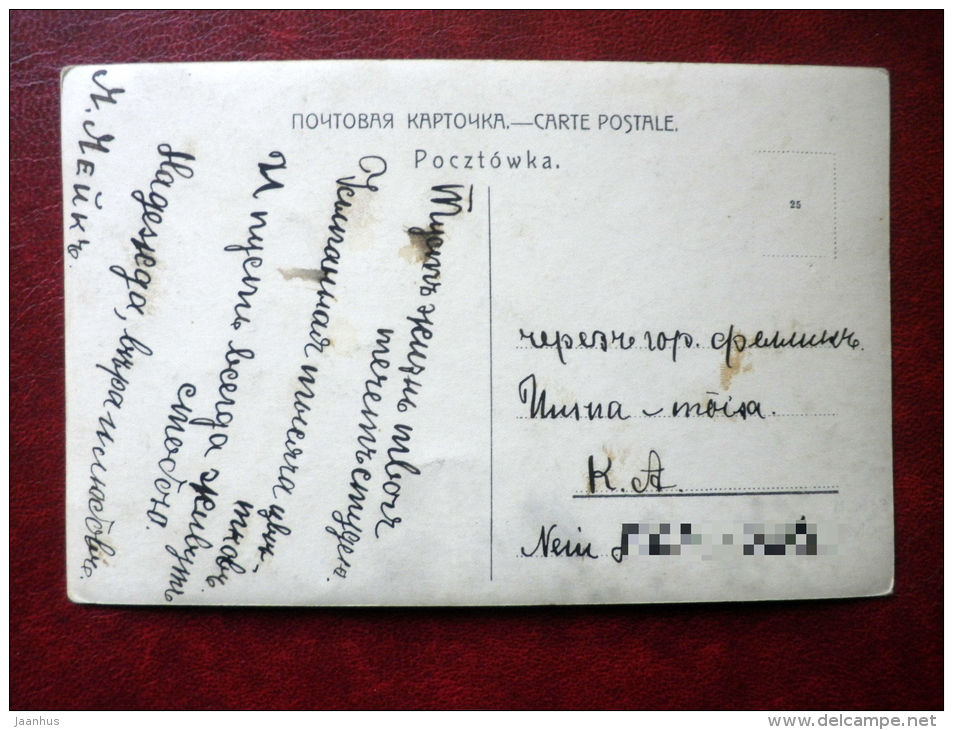 ПОЧТОВАЯ КАРТОЧКА.—CARTE POSTALE.
Pocztówka.
25
Пусть жизнь твоя
течетъ стрѹею
Усыпанная тысяча цвѣ-
товъ.
И пусть всегда живутъ
с тобою.
Надежда, вѣра и любовь.
М. Мейкъ.
черезъ гор. Феллинъ.
К. А.
Neiu
Jaanhus
www.delcampe.net